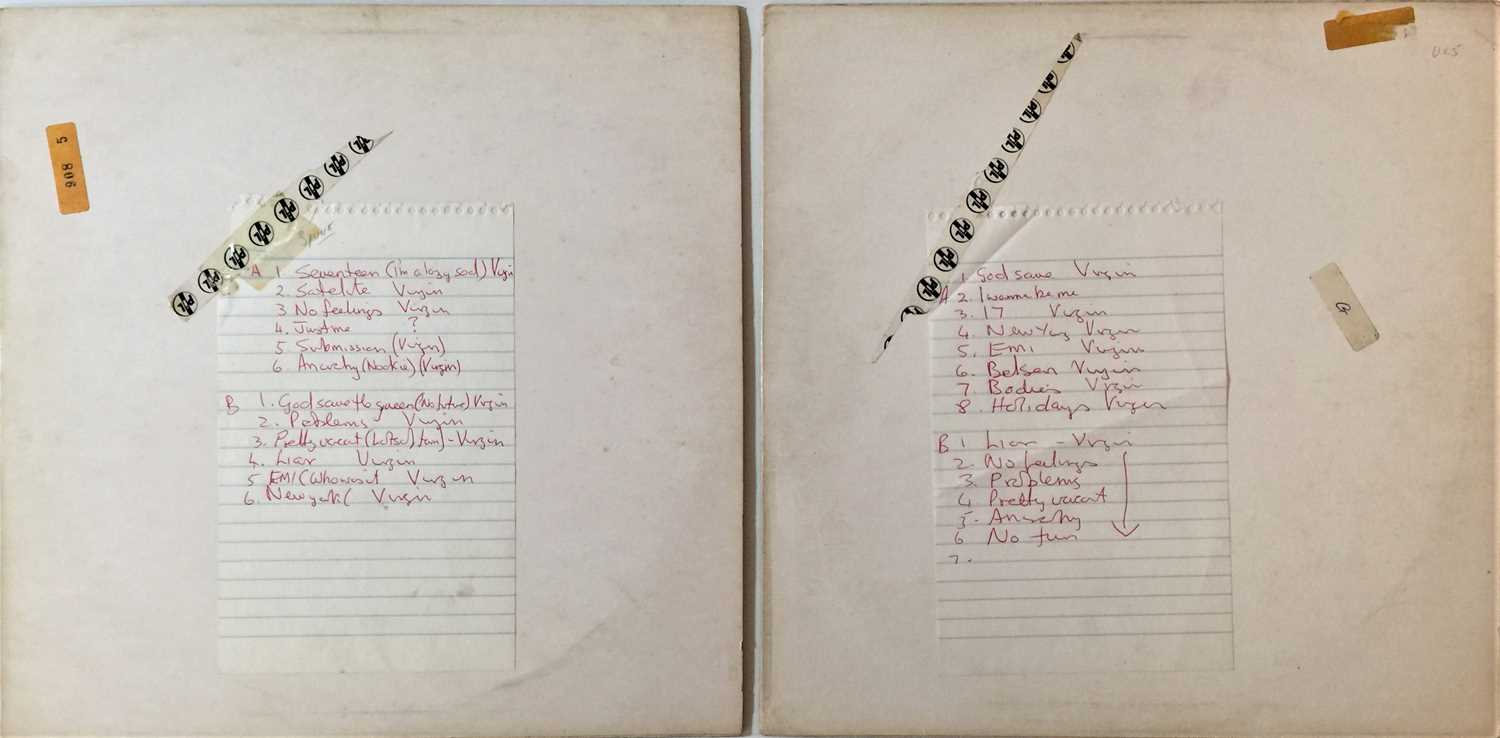 5 806
PiL PiL PiL PiL PiL PiL PiL
Spunk
A 1 Seventeen (I'm a lazy sod) Virgin
2. Satelite Virgin
3 No feelings Virgin
4. Just me ?
5 Submission (Virgin)
6 Anarchy (Nookie) (Virgin)
B 1. God save the queen (No future) Virgin
2. Problems Virgin
3. Pretty vacat (Lots) - Virgin
4. Liar Virgin
5 EMI (Who was it Virgin
6. New york ( Virgin
UKS
PiL PiL PiL PiL PiL PiL PiL PiL
1. God save Virgin
A 2. I wanna be me
3. 17 Virgin
4. New York Virgin
5. EMI Virgin
6. Belsen Virgin
7. Bodies Virgin
8. Holidays Virgin
B 1 Liar - Virgin
2. No feelings
3. Problems
4 Pretty vacant
5. Anarchy
6 No fun
7.